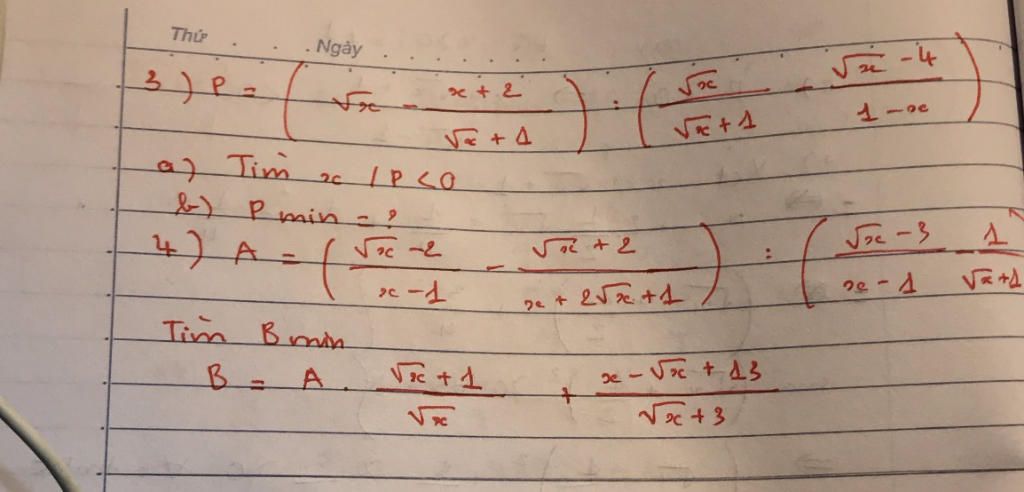 Thứ . . . . Ngày . . . . . . . . . .
3) P = ( √x - (x + 2)/(√x + 1) ) : ( √x/(√x + 1) - (√x - 4)/(1 - x) )
a) Tìm x / P < 0
b) P min = ?
4) A = ( (√x - 2)/(x - 1) - (√x + 2)/(x + 2√x + 1) ) : ( (√x - 3)/(x - 1) - 1/(√x + 1)
Tìm B min
B = A . (√x + 1)/√x + (x - √x + 13)/(√x + 3)